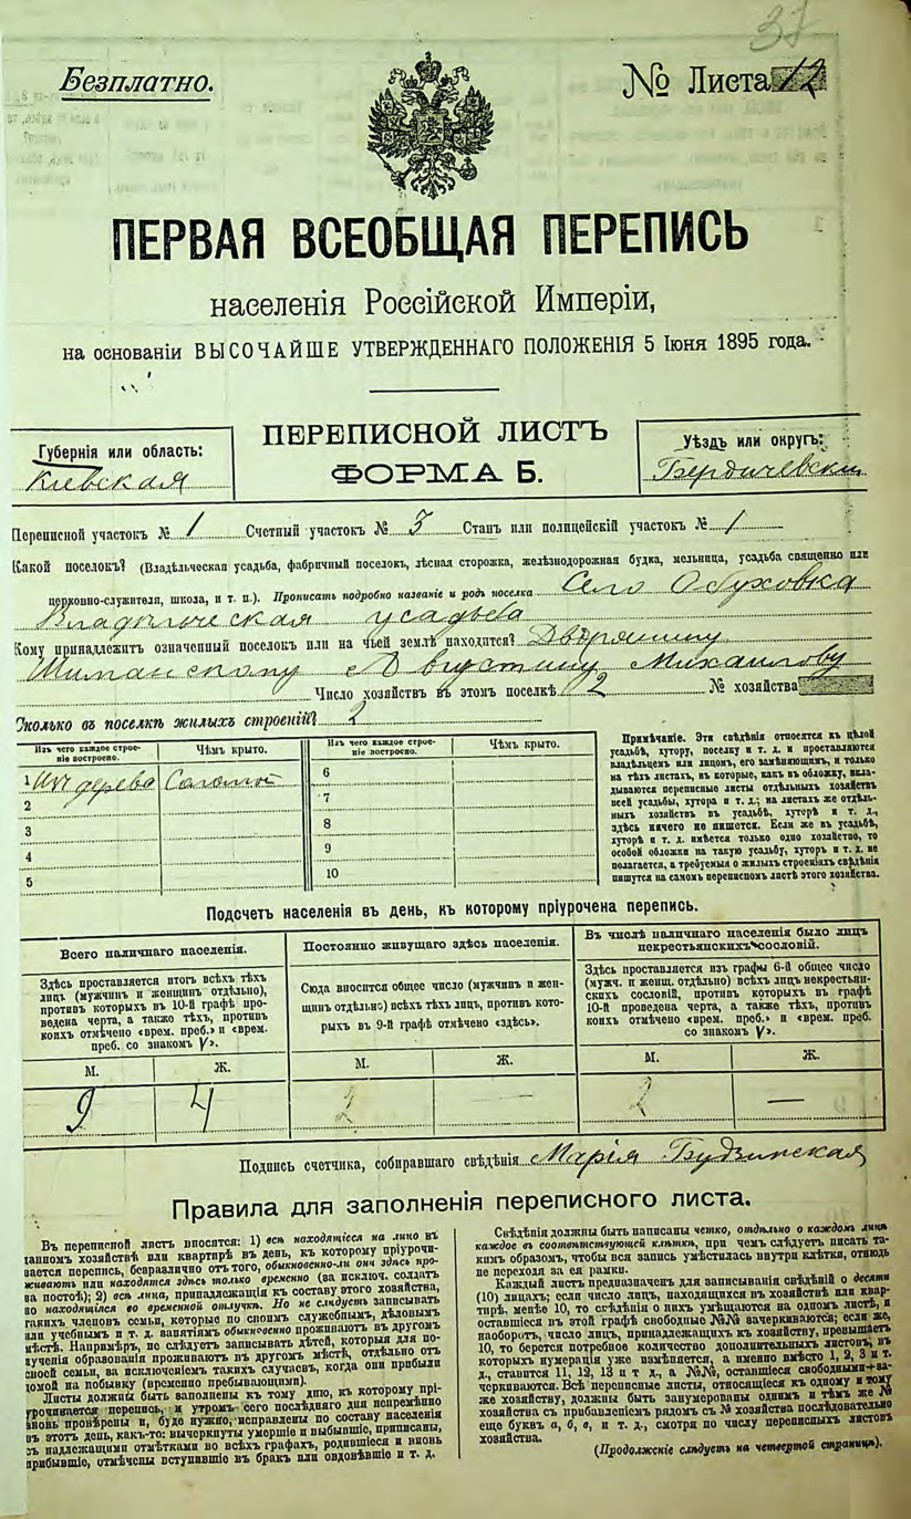 37
Безплатно.
№ Листа 12
ПЕРВАЯ ВСЕОБЩАЯ ПЕРЕПИСЬ
населенія Россійской Имперіи,
на основаніи ВЫСОЧАЙШЕ УТВЕРЖДЕННАГО ПОЛОЖЕНІЯ 5 Іюня 1895 года.
ПЕРЕПИСНОЙ ЛИСТЪ
ФОРМА Б.
Губернія или область:
Киевская
Уѣздъ или округъ:
Бердичевский
Переписной участокъ № 1 Счетный участокъ № 3 Станъ или полицейскій участокъ № 1
Какой поселокъ? (Владѣльческая усадьба, фабричный поселокъ, лѣсная сторожка, желѣзнодорожная будка, мельница, усадьба священно или
церковно-служителя, школа, и т. п.). Прописать подробно названіе и родъ поселка Село Обуховка
Владѣльческая усадьба
Кому принадлежитъ означенный поселокъ или на чьей землѣ находится? Дворянину
Шипанскому Августину Михаилову
Число хозяйствъ въ этомъ поселкѣ 2 № хозяйства
Сколько въ поселкѣ жилыхъ строеній? 2
Изъ чего каждое строеніе построено. Чѣмъ крыто. Изъ чего каждое строеніе построено. Чѣмъ крыто.
1 Изъ дерева Соломой 6
2 7
3 8
4 9
5 10
Примѣчаніе. Эти свѣдѣнія относятся къ цѣлой
усадьбѣ, хутору, поселку и т. д. и проставляются
владѣльцемъ или лицомъ, его замѣняющимъ, и только
на тѣхъ листахъ, въ которые, какъ въ обложку, вкла-
дываются переписные листы отдѣльныхъ хозяйствъ
всей усадьбы, хутора и т. д.; на листахъ же отдѣль-
ныхъ хозяйствъ въ усадьбѣ, хуторѣ и т. д.,
здѣсь ничего не пишется. Если же въ усадьбѣ,
хуторѣ и т. д. имѣется только одно хозяйство, то
особой обложки на такую усадьбу, хуторъ и т. д. не
полагается, а требуемыя о жилыхъ строеніяхъ свѣдѣнія
пишутся на самомъ переписномъ листѣ этого хозяйства.
Подсчетъ населенія въ день, къ которому пріурочена перепись.
Всего наличнаго населенія.
Здѣсь проставляется итогъ всѣхъ тѣхъ
лицъ (мужчинъ и женщинъ отдѣльно),
противъ которыхъ въ 10-й графѣ про-
ведена черта, а также тѣхъ, противъ
коихъ отмѣчено «врем. преб.» и «врем.
преб. со знакомъ V».
М. Ж.
9 4
Постоянно живущаго здѣсь населенія.
Сюда вносится общее число (мужчинъ и жен-
щинъ отдѣльно) всѣхъ тѣхъ лицъ, противъ кото-
рыхъ въ 9-й графѣ отмѣчено «здѣсь».
М. Ж.
2 —
Въ числѣ наличнаго населенія было лицъ
некрестьянскихъ сословій.
Здѣсь проставляется изъ графы 6-й общее число
(мужч. и женщ. отдѣльно) всѣхъ лицъ некрестьян-
скихъ сословій, противъ которыхъ въ графѣ
10-й проведена черта, а также тѣхъ, противъ
коихъ отмѣчено «врем. преб.» и «врем. преб.
со знакомъ V».
М. Ж.
2 —
Подпись счетчика, собиравшаго свѣдѣнія Марія Будзинская
Правила для заполненія переписного листа.
Въ переписной листъ вносятся: 1) всѣ находящіеся на лицо въ
данномъ хозяйствѣ или квартирѣ въ день, къ которому пріурочи-
вается перепись, безразлично отъ того, обыкновенно-ли они здѣсь про-
живаютъ или находятся здѣсь только временно (за исключ. солдатъ
на постоѣ); 2) всѣ лица, принадлежащія къ составу этого хозяйства,
но находящіяся во временной отлучкѣ. Но не слѣдуетъ записывать
такихъ членовъ семьи, которые по своимъ служебнымъ, дѣловымъ
или учебнымъ и т. д. занятіямъ обыкновенно проживаютъ въ другомъ
мѣстѣ. Напримѣръ, не слѣдуетъ записывать дѣтей, которыя для по-
лученія образованія проживаютъ въ другомъ мѣстѣ, отдѣльно отъ
своей семьи, за исключеніемъ такихъ случаевъ, когда они прибыли
домой на побывку (временно пребывающими).
Листы должны быть заполнены къ тому дню, къ которому прі-
урочивается перепись, и утромъ сего послѣдняго дня непремѣнно
вновь провѣрены и, буде нужно, исправлены по составу населенія
въ этотъ день, какъ-то: вычеркнуты умершіе и выбывшіе, приписаны,
съ надлежащими отмѣтками во всѣхъ графахъ, родившіеся и вновь
прибывшіе, отмѣчены вступившіе въ бракъ или овдовѣвшіе и т. д.
Свѣдѣнія должны быть написаны четко, отдѣльно о каждомъ лицѣ
каждое въ соотвѣтствующей клѣткѣ, при чемъ слѣдуетъ писать та-
кимъ образомъ, чтобы вся запись умѣстилась внутри клѣтки, отнюдь
не переходя за ея рамки.
Каждый листъ предназначенъ для записыванія свѣдѣній о десяти
(10) лицахъ; если число лицъ, находящихся въ хозяйствѣ или квар-
тирѣ, менѣе 10, то свѣдѣнія о нихъ умѣщаются на одномъ листѣ, и
оставшіеся въ этой графѣ свободные №№ зачеркиваются; если же,
наоборотъ, число лицъ, принадлежащихъ къ хозяйству, превышаетъ
10, то берется потребное количество дополнительныхъ листовъ, въ
которыхъ нумерація уже измѣняется, а именно вмѣсто 1, 2, 3 и т.
д., ставится 11, 12, 13 и т д., а №№, оставшіеся свободными за-
черкиваются. Всѣ переписные листы, относящіеся къ одному и тому
же хозяйству, должны быть занумерованы однимъ и тѣмъ же №
хозяйства съ прибавленіемъ рядомъ съ № хозяйства послѣдовательно
еще буквъ а, б, в, и т. д., смотря по числу переписныхъ листовъ
хозяйства.
(Продолженіе слѣдуетъ на четвертой страницѣ).